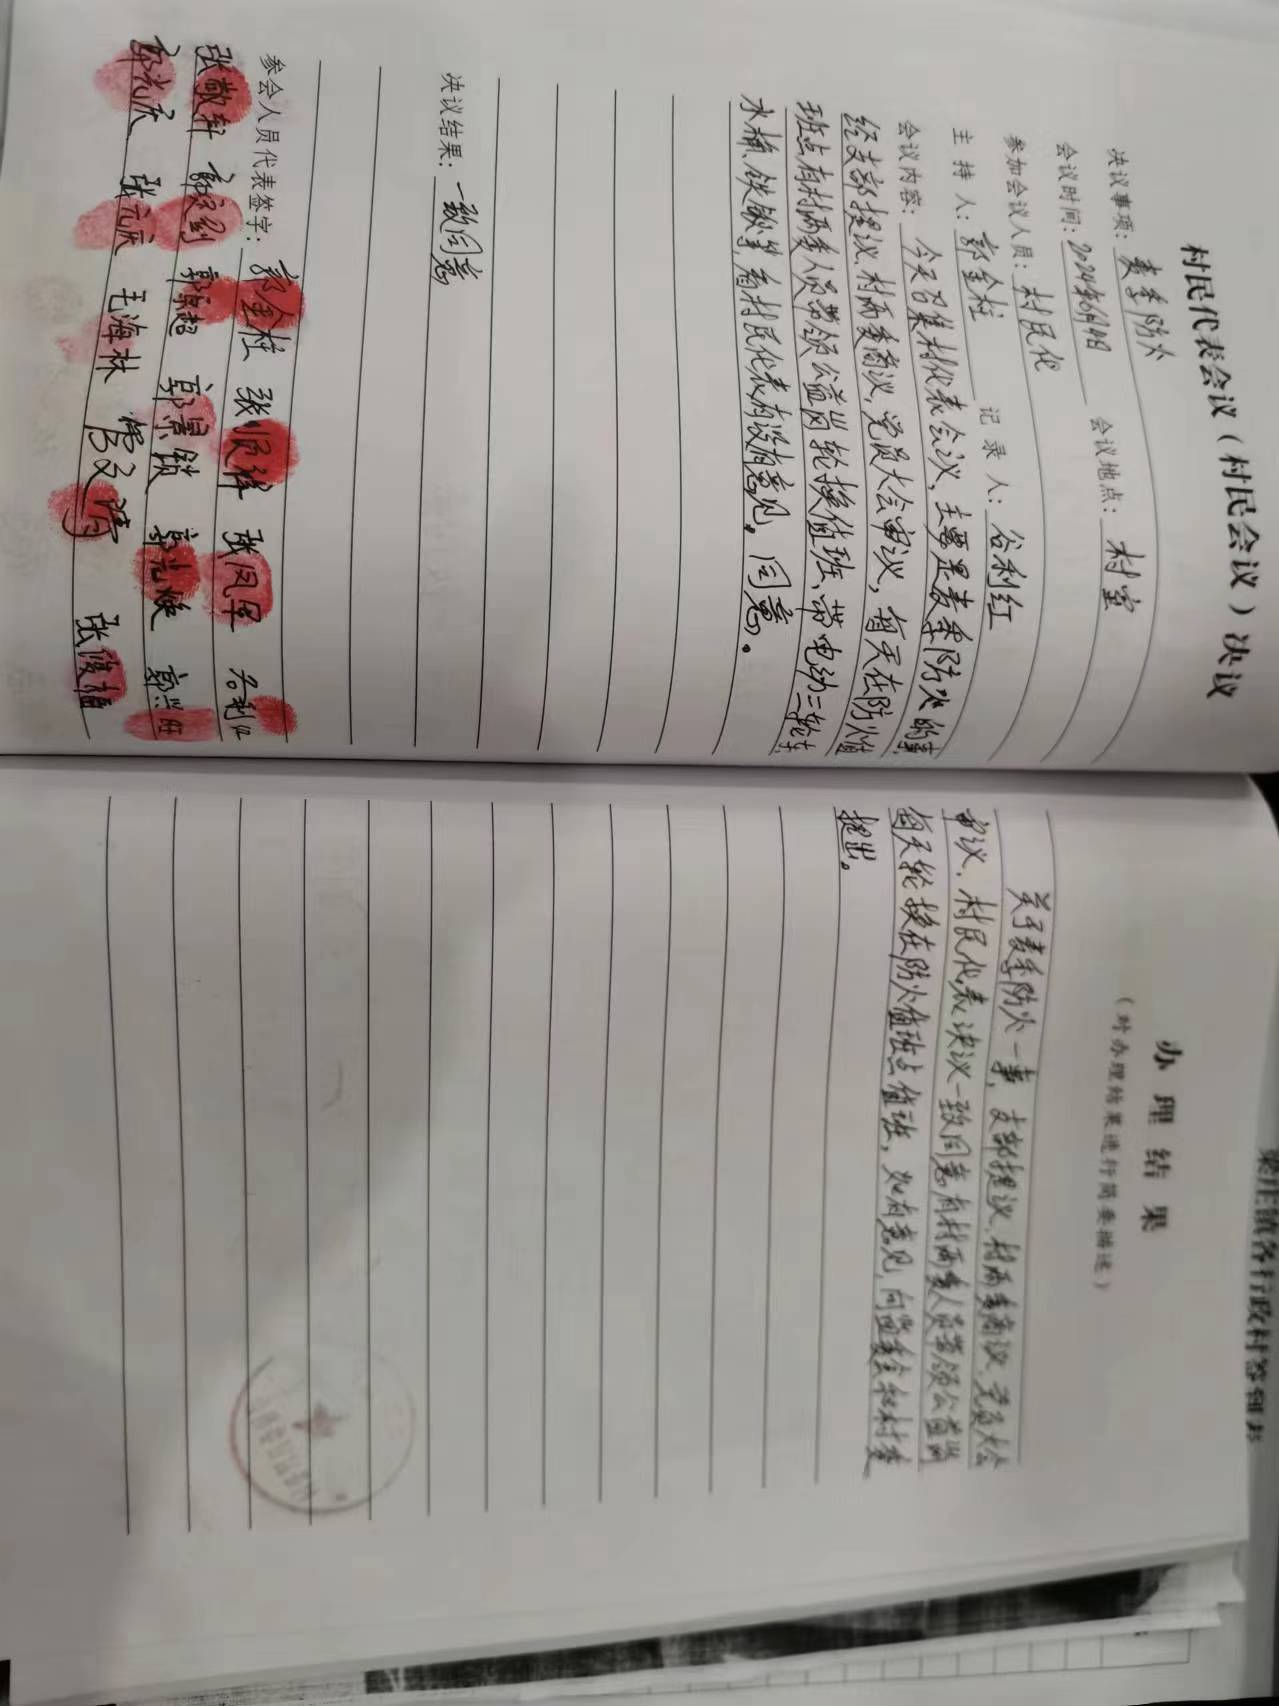 村民代表会议（村民会议）决议
决议事项：麦季防火
会议时间：2024年6月4日 会议地点：村室
参加会议人员：村民代
主持人：郭金柱 记录人：谷利红
会议内容：今天召集村代表会议，主要是麦季防火的事
经支部提议，村两委商议，党员大会审议，每天在防火值
班点有村两委人员带领公益岗轮换值班、带电动三轮车
水桶、铁锨等，看村民代表有没有意见。同意。
决议结果：一致同意
参会人员代表签字：郭金柱 张顺祥 张凤军 谷利红
张敬轩 郭景超 郭景锁 郭光焕 郭兴旺
郭光庆 张元庆 毛海林 张俊福
办理结果
（对办理结果进行简要描述）
关于麦季防火一事，支部提议，村两委商议，党员大会
审议，村民代表决议一致同意有村两委人员带领公益岗
每天轮换在防火值班点值班，如有意见，向监委会和村委
提出。